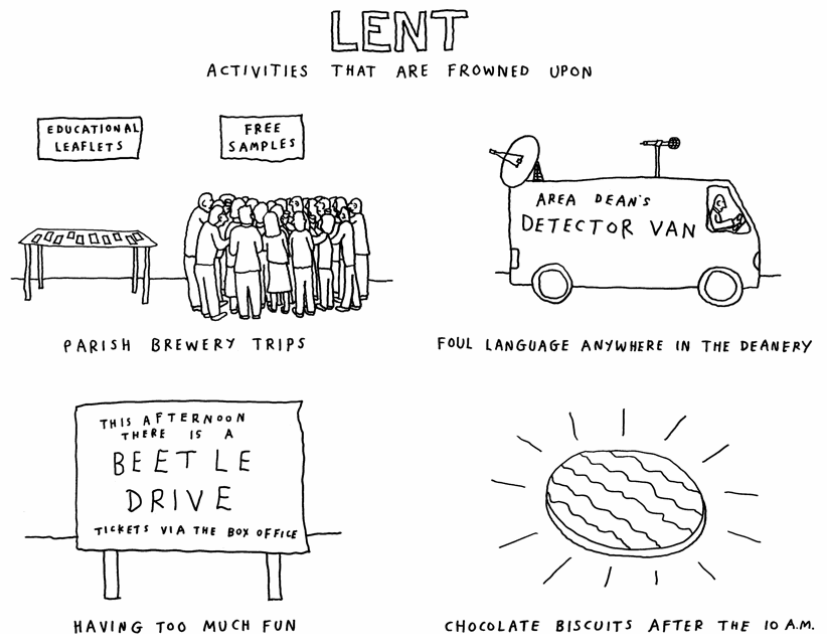 LENT
ACTIVITIES THAT ARE FROWNED UPON
EDUCATIONAL
LEAFLETS
FREE
SAMPLES
PARISH BREWERY TRIPS
AREA DEAN'S
DETECTOR VAN
FOUL LANGUAGE ANYWHERE IN THE DEANERY
THIS AFTERNOON
THERE IS A
BEETLE
DRIVE
TICKETS VIA THE BOX OFFICE
HAVING TOO MUCH FUN
CHOCOLATE BISCUITS AFTER THE 10 A.M.